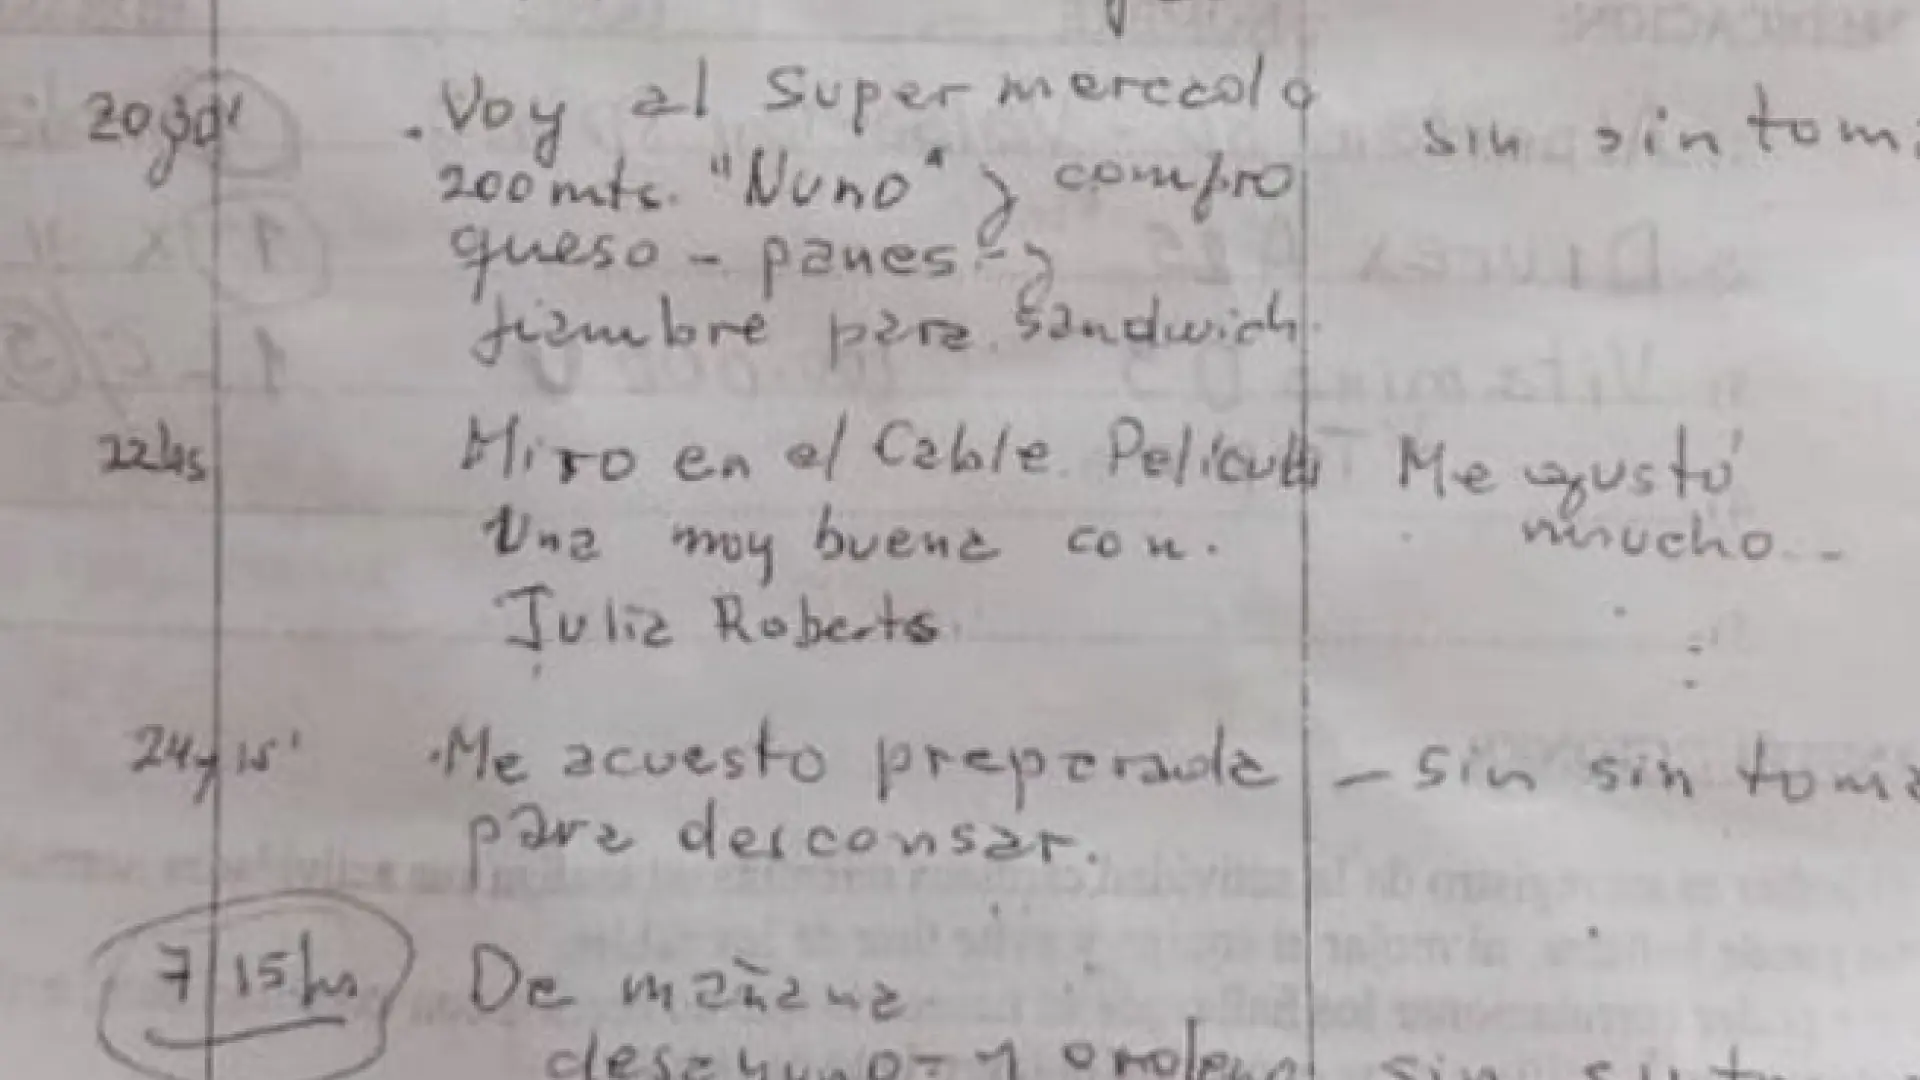 20 y 30' . Voy al Supermercado sin sintoma
200 mts. "Nuno" y compro
queso - panes - y
fiambre para sandwich.
22 hs Miro en el Cable Pelicula Me gustó
Una muy buena con. mucho..-
Julia Roberts
24 y 15' .Me acuesto preparada - sin sintoma
para descansar.
7 15 hs De mañana
desayuno - y ordeno sin sinto